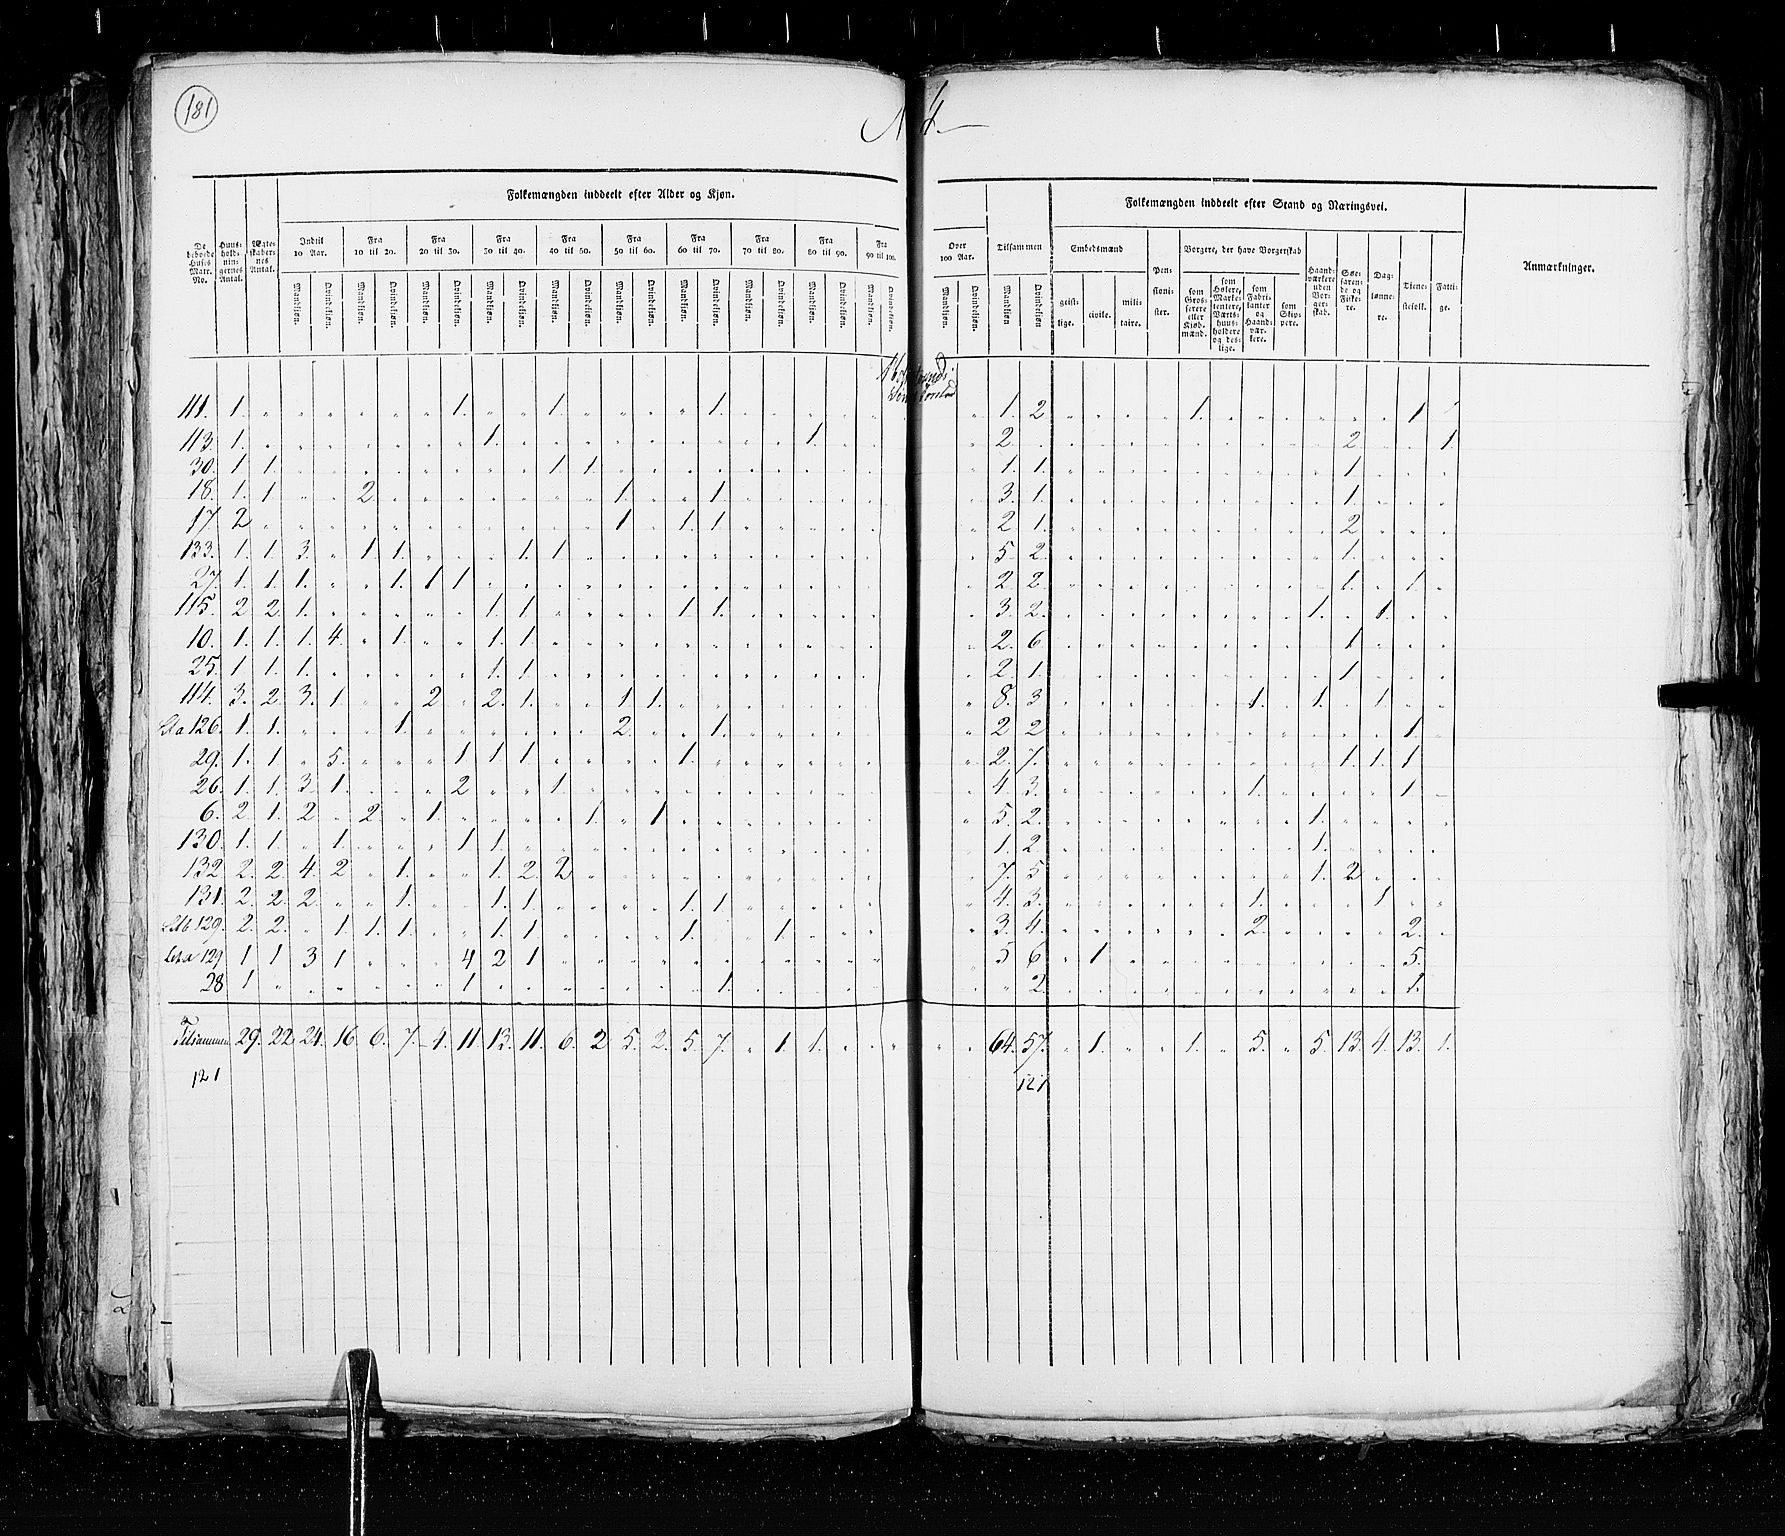 181
N 4
Folkemængden inddeelt efter Alder og Kjøn.
Folkemængden inddeelt efter Stand og Næringsvei.
De beboede Huses Matr. No. | Huusholdningernes Antal. | Ægteskabernes Antal. | Indtil 10 Aar. | Fra 10 til 20. | Fra 20 til 30. | Fra 30 til 40. | Fra 40 til 50. | Fra 50 til 60. | Fra 60 til 70. | Fra 70 til 80. | Fra 80 til 90. | Fra 90 til 100. | Over 100 Aar. | Tilsammen | Embedsmænd | Pensionister. | Borgere, der have Borgerskab | Haandværkere uden Borgerskab. | Søefarende og Fiskere. | Daglønnere. | Tienestefolk. | Fattige. | Anmærkninger.
Mandkiøn. Qvindekiøn. Mandkiøn. Qvindekiøn. Mandkiøn. Qvindekiøn. Mandkiøn. Qvindekiøn. Mandkiøn. Qvindekiøn. Mandkiøn. Qvindekiøn. Mandkiøn. Qvindekiøn. Mandkiøn. Qvindekiøn. Mandkiøn. Qvindekiøn. Mandkiøn. Qvindekiøn. Mandkiøn. Qvindekiøn. Mandkiøn Qvindekiøn
geistlige. civile. militaire. som Grosserere eller Kjøbmænd. som Høkere, Marketentere, Værtshuusholdere og deslige. som Fabrikanter og Haandværkere. som Skippere.
111. 1. " " " " " " " 1. " " 1. " " " " 1. " " " " " 1. 2 " " " " 1. " " " " " " 1
113. 1. " " " " " " " " 1. " " " " " " " " " 1. " " " 2. " " " " " " " " " " 2 " " 1.
30. 1. 1. " " " " " " " " 1. 1 " " " " " " " " " " 1. 1. " " " " " " " " " 1. " " "
18. 1. 1 " " 2 " " " " " " " 1. " " 1. " " " " " " 3. 1. " " " " " " " " " 1. " " "
17. 2 " " " " " " " " " " " 1 " 1. 1. " " " " " " 2 1. " " " " " " " " " 2 " " "
133. 1. 1 3. " 1. 1. " " " 1. 1. " " " " " " " " " " " 5 2. " " " " " " " " " 1. " " "
27. 1. 1. 1. " " 1. 1 1. " " " " " " " " " " " " " " 2. 2 " " " " " " " " " 1. " 1. "
115. 2 2. 1. " " " " " 1. 1. " " " " 1. 1. " " " " " " 3. 2. " " " " " " " " 1. " 1. " "
10. 1. 1. 1. 4. " 1. " " 1. 1. " " " " " " " " " " " " 2. 6 " " " " " " " " " 1. " " "
25. 1 1. 1. " " " " " 1. 1 " " " " " " " " " " " " 2. 1. " " " " " " " " " 1. " " "
114. 3. 2. 3. 1. " " 2 " 2. 1. " " 1. 1. " " " " " " " " 8. 3 " " " " " " 1. " 1. " 1 " "
Lit a 126. 1. 1. " " " 1. " " " " " " 2. " " 1. " " " " " " 2 2 " " " " " " " " " " " 1. "
29. 1. 1 " 5. " " " 1 1. 1 " " " " 1. " " " " " " " 2. 7. " " " " " " " " " 1. 1. 1 "
26. 1. 1. 3. 1. " " " 2 " " 1. " " " " " " " " " " " 4. 3. " " " " " " 1. " " " " 1. "
6. 2. 1. 2 " 2 " 1. " " " " 1. " 1. " " " " " " " " 5. 2. " " " " " " " " 1. " " " "
130. 1. 1. " 1. " " " 1. 1. " " " " " " " " " " " " " 1. 2. " " " " " " " " 1. " " " "
132 2. 2. 4. 2 " 1. " " 1. 2. 2 " " " " " " " " " " " 7. 5 " " " " " " " " 1. 2 " " "
131. 2. 2. 2 " " 1. " " 1. 1. " " " " 1. 1. " " " " " " 4. 3. " " " " " " 1. " " " 1. " "
Lit b 129. 2. 2. " 1. 1. 1. " " 1. 1. " " " " 1. " " 1. " " " " 3. 4. " " " " " " 2. " " " " 2. "
Lit a 129 1 1 3 1 " " " 4 2 1 " " " " " " " " " " " " 5 6 " 1. " " " " " " " " " 5. "
28 1 " " " " " " 1. " " " " " " " 1. " " " " " " " 2 " " " " " " " " " " " 1. "
Tilsammen 29. 22 24. 16 6. 7. 4. 11 13. 11. 6. 2 5. 2. 5 7. " 1. 1. " " " " " 64. 57. " 1. " " 1. " 5. " 5. 13. 4. 13. 1.
121 121